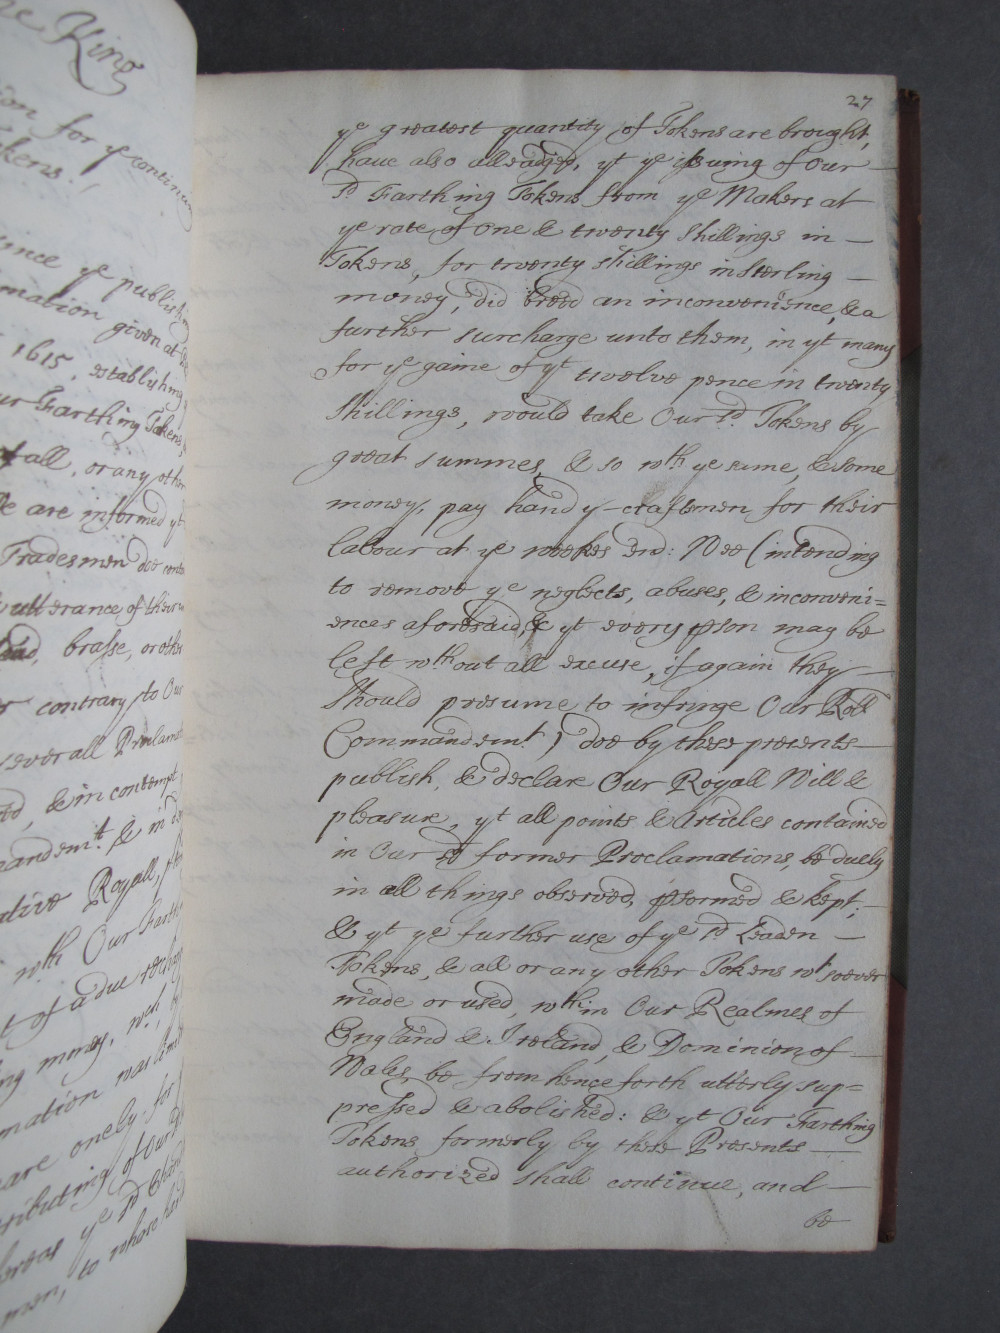 ye King
ion for ye continu
okens.
ince ye publish
mation given at
1615, establishing
ur Farthing Tokens,
at all, or any other
We are informed yt
Tradesmen doe cont
utterance of their
Lead, brasse, or other
contrary to Our
severall Proclamat
& in contempt
mandemt. & in
ative Royall,
wth Our Farth
t of a due
ng money, wch, by
mation was
are onely for
tributing of Our
hereas ye sd. Chan
men, to whose
27
ye greatest quantity of Tokens are brought,
have also alleadged, yt ye issuing of our
sd. Farthing Tokens from ye Makers at
ye rate of one & twenty shillings in
Tokens, for twenty shillings in sterling
money, did breed an inconvenience, & a
further surcharge unto them, in yt many
for ye gaine of yt twelve pence in twenty
shillings, would take Our sd. Tokens by
great summes, & so wth ye same, & some
money, pay handy-craftsmen for their
labour at ye weekes end: Wee (intending
to remove ye neglects, abuses, & inconveni=
ences aforesaid, & yt every pson may be
left wthout all excuse, if again they
should presume to infringe Our Roll
Commandemt.) doe by these presents
publish, & declare Our Royall Will &
pleasure, yt all points & Articles contained
in Our sd former Proclamations, be duely
in all things observed, pformed & kept;
& yt ye further use of ye sd Leaden
Tokens, & all or any other Tokens wtsoever
made or used, wthin Our Realmes of
England & Ireland, & Dominion of
Wales, be from henceforth utterly sup=
pressed & abolished: & yt Our Farthing
Tokens formerly by these Presents
authorized shall continue, and
be